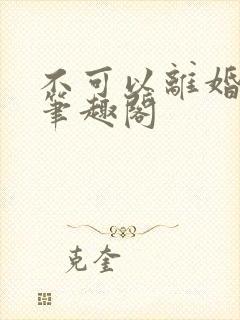 不可以離婚
筆趣閣
克奎